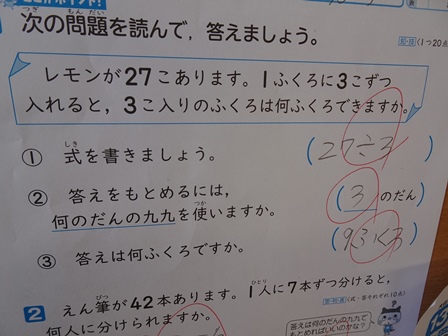 次の問題を読んで，答えましょう。
1つ20点
レモンが27こあります。1ふくろに3こずつ
入れると，3こ入りのふくろは何ふくろできますか。
① 式を書きましょう。
(27÷3)
② 答えをもとめるには，
何のだんの九九を使いますか。
(3)のだん
③ 答えは何ふくろですか。
(9ふくろ)
2 えん筆が42本あります。1人に7本ずつ分けると，
何人に分けられますか。
答えは何のだんの九九で
もとめればいいのかな？